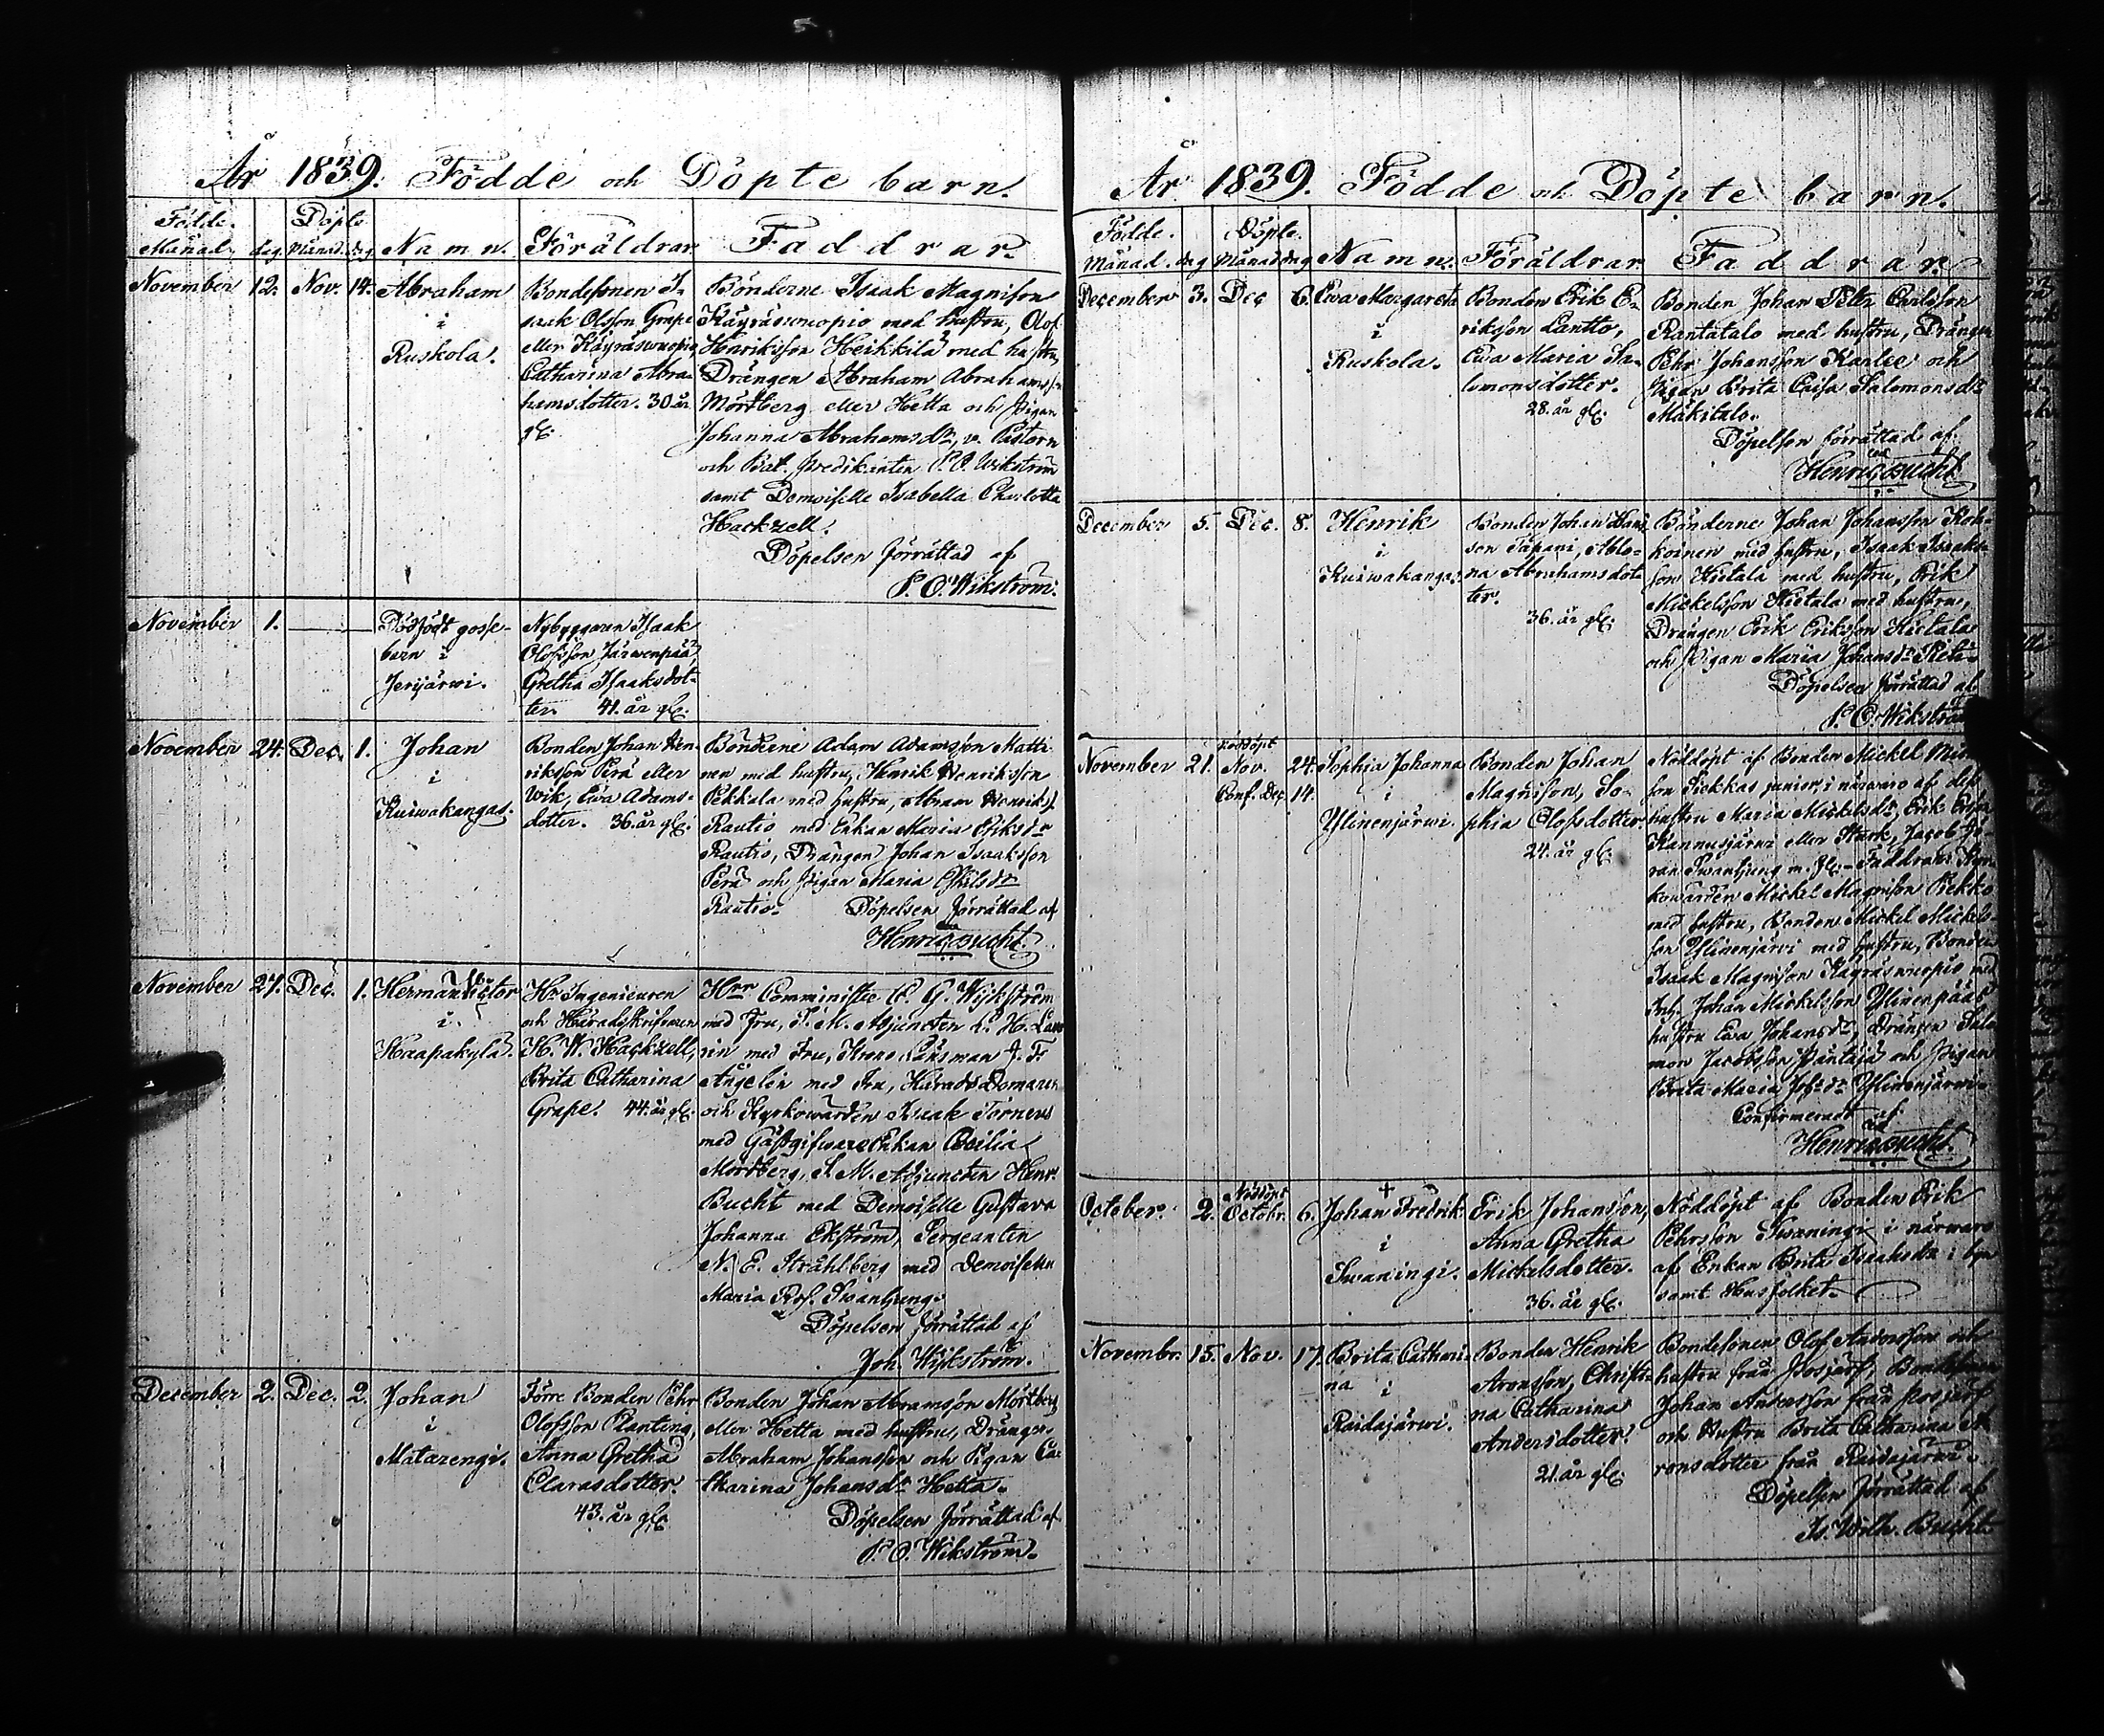 År 1839. Födde och Döpte barn.
Födde. Döpte
Månad. dag. Månad. dag Namn. Föräldrar Faddrar.
November 12. Nov. 14. Abraham
i
Ruskola.
Bondesonen I-
saak Olsson Grape
eller Käyräswuopio,
Catharina Abra-
hamsdotter. 30 år
gl.
Bönderne Isaak Magnisson
Käyräswuopio med hustru, Olof
Henriksson Heikkilä med hustru,
Drängen Abraham Abrahamsson
Mörtberg eller Hetta och Pigan
Johanna Abrahamsdr, v. Pastorn
och Bat. Predikanten P. O. Wikström
samt Demoiselle Isabella Charlotta
Hackzell.
Döpelsen förrättad af
P. O. Wikström.
November 1. Dödfödt gosse-
barn i
Jerijärwi.
Nybyggaren Isaak
Olofsson Järwenpää,
Gretha Isaaksdot-
ter. 41. år gl.
November 24. Dec. 1. Johan
i
Kuiwakangas.
Bonden Johan Hen-
riksson Perä eller
Wik, Ewa Adams-
dotter. 36. år gl.
Bönderne Adam Adamsson Matti-
nen med hustru, Henrik Henriksson
Pekkala med hustru, Abram Henriks.
Rautio med Enkan Maria Eriksdr
Rautio, Drängen Johan Isaaksson
Perä och Pigan Maria Eskilsdr
Rautio. Döpelsen förrättad af
Henric Bucht.
November 27. Dec. 1. Herman Victor
i
Haapakylä.
Hr Ingenieuren
och Häradskrifvaren
H. W. Hackzell,
Brita Catharina
Grape. 44. år gl.
Hrr Comministie C. G. Wijkström
med Fru, S. M. Adjuncten L. H.
rin med Fru, Krono Länsman J. F.
Ångelin med Fru, Härads Domaren
och Kyrkowärden Isaak Törneus
med Gästgifware Enkan Cecilia
Mörtberg, S. M. Adjuncten Henr.
Bucht med Demoiselle Gustava
Johanna Ekström, Sergeanten
N. E. Stråhlberg med Demoisellen
Maria Ros. Swanljung.
Döpelsen förrättad af
Joh. Wijkström.
December 2. Dec. 2. Johan
i
Matarengi.
Förre Bonden Pehr
Olofsson Planting,
Anna Gretha
Clarasdotter.
43. år gl.
Bonden Johan Abramsson Mörtberg
eller Hetta med hustru, Drängen
Abraham Johansson och Pigan Ca-
tharina Johansdr Hetta.
Döpelsen förrättad af
P. O. Wikström.
År 1839. Födde och Döpte barn.
Födde. Döpte.
Månad. dag Månad dag Namn. Föräldrar. Faddrar.
December 3. Dec 6. Ewa Margareta
i
Ruskola.
Bonden Erik E-
riksson Lantto,
Ewa Maria Sa-
lomonsdotter.
28. år gl.
Bonden Johan Petter Carlsson
Rantatalo med hustru, Drängen
Pehr Johansson Kanlee och
Pigan Brita Cajsa Salomonsdr
Mäkitalo.
Döpelsen förrättad af
Henric Bucht
December 5. Dec. 8. Henrik
i
Kuiwakangas.
Bonden Johan Hans-
son Tapani, Mag-
na Abrahamsdot-
ter.
36. år gl.
Bönderne Johan Johansson Koh-
koinen med hustru, Isaak Isaaks-
son Kietala med hustru, Erik
Mickelsson Kietala med hustru,
Drängen Erik Eriksson Kietala
och Pigan Maria Johansdr
Döpelsen förrättad af
P. O. Wikström
November 21. Nöddöpt
Nov. 24.
Conf. Dec. 14.
Sophia Johanna
i
Ylinenjärwi.
Bonden Johan
Magnisson, So-
phia Olofsdotter.
24. år gl.
Nöddöpt af Bonden Mickel
son Piekkas junior, i närwaro af dess
hustru Maria Mickelsdr, Erik
Kannusjärwi eller Stark, Jacob Gö-
ran Swanljung m. fl. Faddrar: Kyr-
kowärden Mickel Magnisson Piekko
med hustru, Bonden Mickel Mickels-
son Ylinenjärwi med hustru, Bonden
Isaak Magnisson Käyräswuopio med
Inh. Johan Mickelsson Ylinenpääs
hustru Ewa Johansdr, Drängen Salo-
mon Jacobsson Pantäjä och Pigan
Brita Maria Johsdr Ylinenjärwi.
Confirmeradt af
Henric Bucht.
October. 2. Nöddöpt
Octobr. 6. + Johan Fredrik
i
Swaningi.
Erik Johansson,
Anna Gretha
Mickelsdotter.
36. år gl.
Nöddöpt af Bonden Erik
Pehrsson Swaningi i närwaro
af Enkan Brita Isaaksdr i byn
samt Husfolket.
Novembr. 15. Nov. 17. Brita Cathari-
na i
Raidajärwi.
Bonden Henrik
Aronsson, Christi-
na Catharina
Andersdotter.
21. år gl.
Bondesonen Olof Andersson och
hustru från Posjärf, Bondesonen
Johan Andersson från Posjärf
och Hustru Brita Catharina A-
ronsdotter från Raidajärwi.
Döpelsen förrättad af
Is. Wilh. Bucht